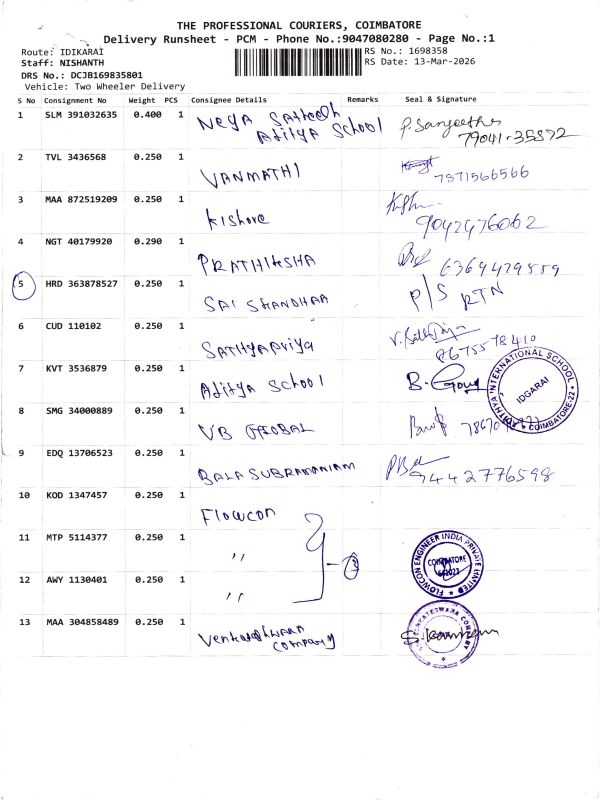 THE PROFESSIONAL COURIERS, COIMBATORE
Delivery Runsheet - PCM - Phone No.:9047080280 - Page No.:1
Route: IDIKARAI
Staff: NISHANTH
DRS No.: DCJB169835801
Vehicle: Two Wheeler Delivery
RS No.: 1698358
RS Date: 13-Mar-2026
S No Consignment No Weight PCS Consignee Details Remarks Seal & Signature
1 SLM 391032635 0.400 1 Neya Satheesh
Aditya School
P. Sangeetha
2 TVL 3436568 0.250 1 VANMATHI
7371566566
3 MAA 872519209 0.250 1 Kishore
9042476062
4 NGT 40179920 0.290 1 PRATHIKSHA
6364479559
5 HRD 363878527 0.250 1 SAI SKANDHAA P/S RTN
6 CUD 110102 0.250 1 SATHYAPRIYA
8675578410
7 KVT 3536879 0.250 1 Aditya School
ADITHYA INTERNATIONAL SCHOOL
IDGARAI
COIMBATORE-22
8 SMG 34000889 0.250 1 VB GLOBAL
9 EDQ 13706523 0.250 1 BALASUBRAMANIAM
9442776598
10 KOD 1347457 0.250 1 Flowcon
11 MTP 5114377 0.250 1 ,,
12 AWY 1130401 0.250 1 ,,
3
FLOWCON ENGINEER INDIA PRIVATE LIMITED
COIMBATORE
13 MAA 304858489 0.250 1 Venkateshwaraa
Company